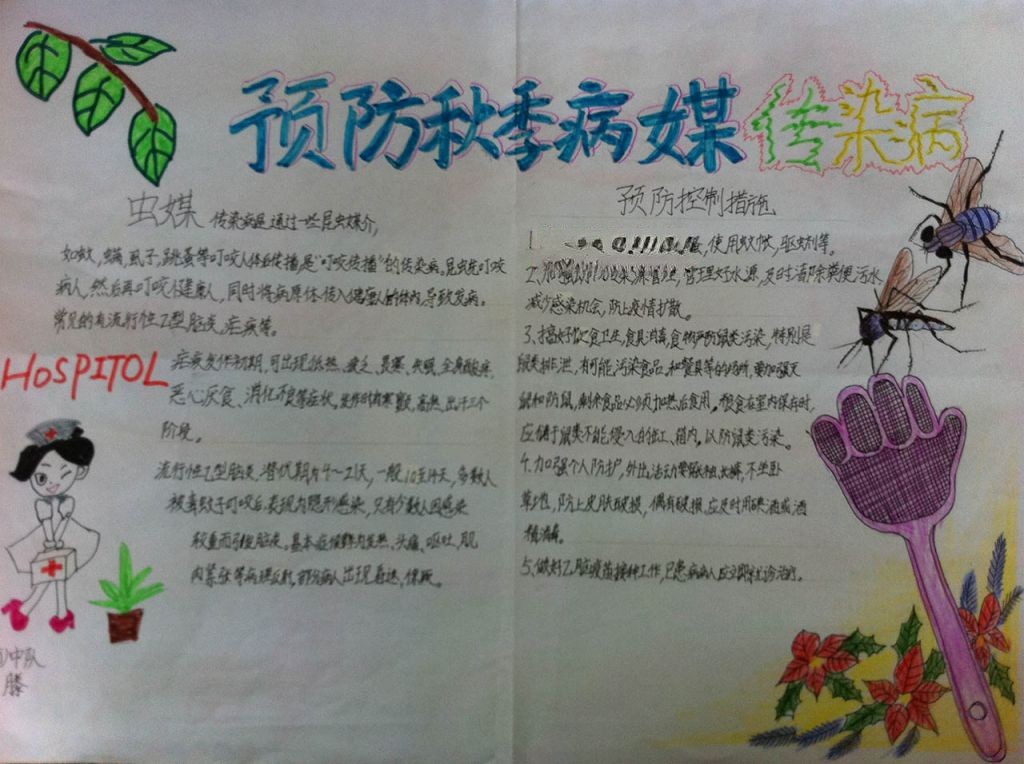 预防秋季病媒传染病
虫媒 传染病是通过一些昆虫媒介,
如蚊,螨,虱子,跳蚤等叮咬人体后传播是“叮咬传播”的传染病。昆虫先叮咬
病人,然后再叮咬健康人,同时将病原体传入健康人的体内,导致发病。
常见的有流行性乙型脑炎,疟疾等。
HOSPITOL
疟疾发作初期,可出现低热、疲乏、畏寒、头痛、全身酸疼、
恶心、厌食、消化不良等症状,发作时有寒颤,高热,出汗三个
阶段。
流行性乙型脑炎,潜伏期为4~21天,一般10至14天,多数人
被毒蚊子叮咬后,表现为隐形感染,只有少数人因感染
较重而引起脑炎、基本症候群为发热、头痛、呕吐、肌
肉紧张等病理反射,部分病人出现昏迷、惊厥。
中队
滕
预防控制措施
1. 使用蚊帐,驱虫剂等。
2. 管理好水源,及时清除粪便污水
减少感染机会,防止疫情扩散。
3、搞好饮食卫生,食具消毒,食物严防鼠类污染,特别是
鼠类排泄,有可能污染食品,和餐具等的场所,要加强灭
鼠和防鼠,剩余食品必须加热后食用。粮食在室内保存时,
应储于鼠类不能侵入的缸、箱内,以防鼠类污染。
4.加强个人防护,外出活动要,不坐卧
草地,防止皮肤破损,偶有破损,应及时用碘酒或酒
精消毒。
5、做好乙脑疫苗接种工作,已患病病人应立即就诊治疗。